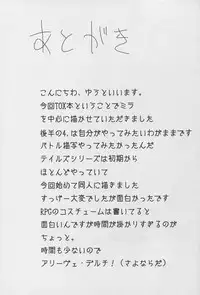 あとがき
こんにちわ、ゆうといいます。
今回TOX本ということでミラ
を中心に描かせていただきました
後半の4.は自分がやってみたいわがままです
バトル描写やってみたかったんだ
テイルズシリーズは初期から
ほとんどやっていて
今回始めて同人に描きました
すっげー大変でしたが面白かったです
RPGのコスチュームは書いてると
面白いんですが時間が掛かりすぎるのが
ちょっと。
時間も少ないので
アリーヴェ・デルチ！（さよならだ）